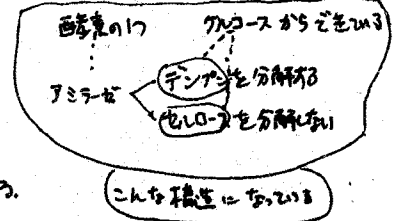 酵素の1つ
グルコースからできている
アミラーゼ
デンプンを分解する
セルロースを分解しない
る.
こんな構造になっている